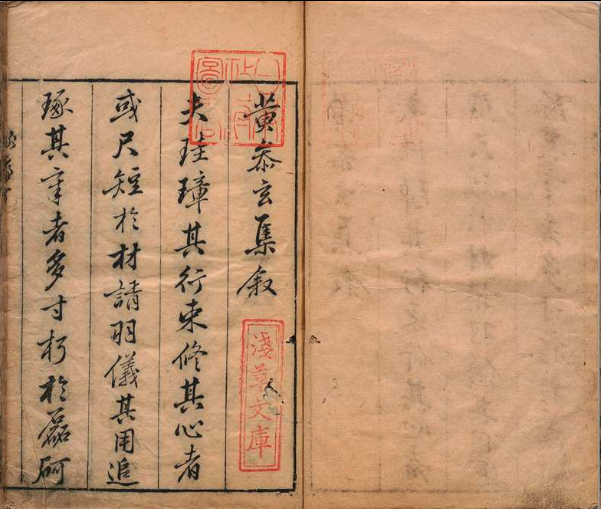 日本政府圖書
黄叅玄集叙
淺草文庫
夫珪璋其行束修其心者
或尺短於材請羽儀其用追
琢其章者多寸朽於磊砢